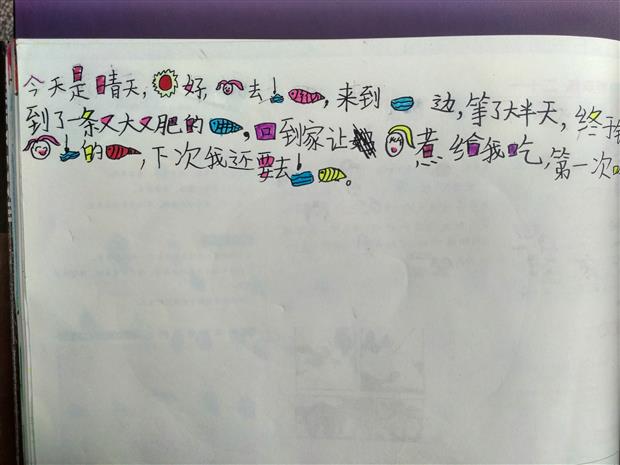 今天是晴天，好，去，来到边，等了大半天，终于
到了一条又大又肥的，回到家让煮给我吃，第一次
的，下次我还要去。